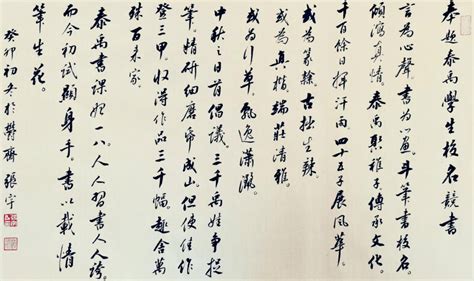 奉題泰禹學生校名競書
言為心聲書為心画。斗筆書校名。
傾瀉真情。泰禹雅子傳承文化。
千百餘日揮汗雨四十五子展風華。
或為篆隸。古拙生辣。
或為真楷端莊清雅。
或為行草。飄逸瀟灑。
中秋之日有倡議。三千禹娃爭捉
筆。精研細磨帋成山。但使佳作
登三甲。收得作品三千幅。趣舍萬
殊百來家
泰禹書課一八。人人習書人人誇。
而今初試顯身手。書以載情
筆生花。
癸卯初冬於齋張宇